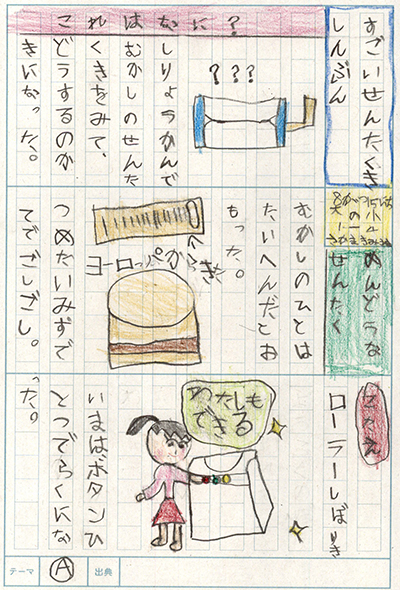 すごいせんたくき
しんぶん
これはなに?
???
しりょうかんで
むかしのせんた
くきをみて、
どうするのか
きになった。
めんどうな
せんたく
むかしのひとは
たいへんだとお
もった。
ヨーロッパから
つめたいみずで
てでごしごし。
こたえ
ローラーしぼりき
わたしも
できる
いまはボタンひ
とつでらくにな
った。
テーマ
A
出典